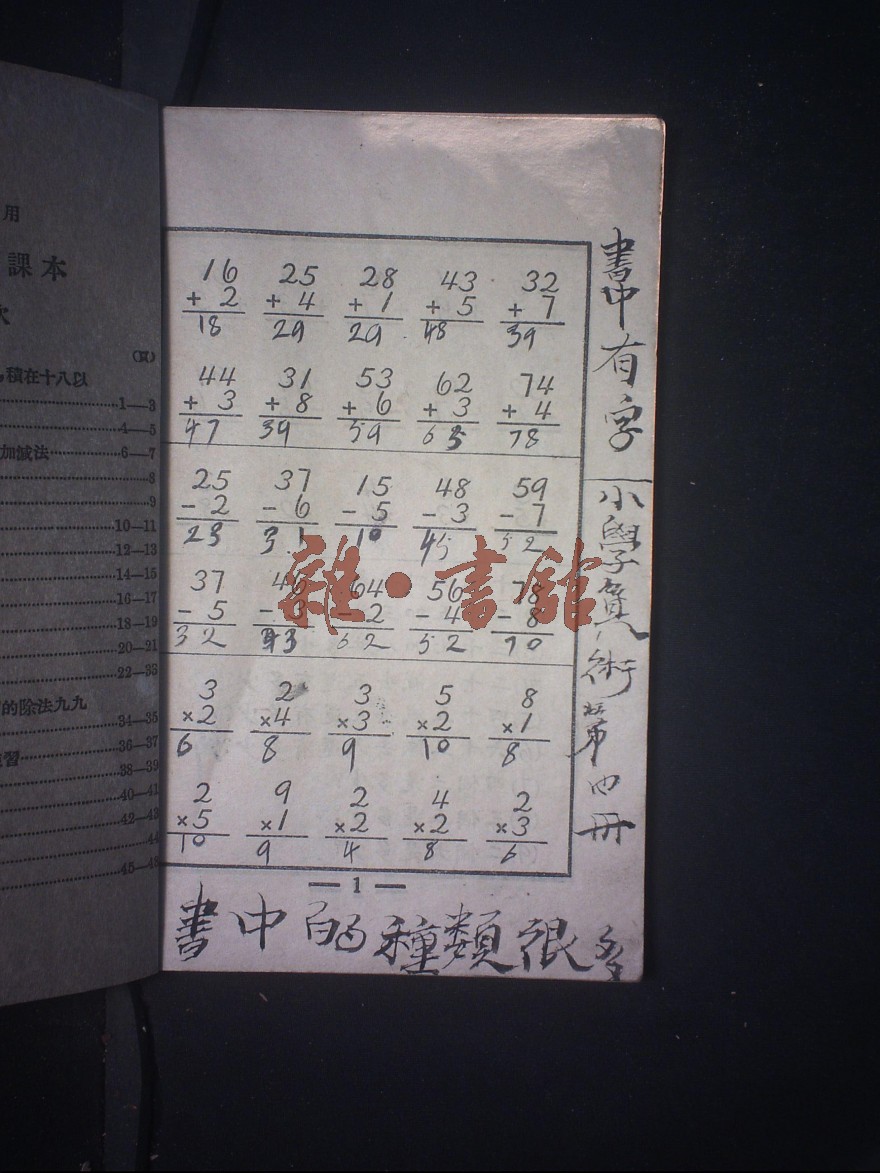 用
課本
次
(頁)
積在十八以
1—3
4—5
加減法 6—7
8
9
10—11
12—13
14—15
16—17
18—19
20—21
22—33
的除法九九
34—35
習 36—37
38—39
40—41
42—43
44
45—48
16 25 28 43 32
+ 2 + 4 + 1 + 5 + 7
18 29 29 48 39
44 31 53 62 74
+ 3 + 8 + 6 + 3 + 4
47 39 59 65 78
25 37 15 48 59
- 2 - 6 - 5 - 3 - 7
23 31 10 45 52
37 46 64 56 78
- 5 - 3 - 2 - 4 - 8
32 43 62 52 70
3 2 3 5 8
×2 ×4 ×3 ×2 ×1
6 8 9 10 8
2 9 2 4 2
×5 ×1 ×2 ×2 ×3
10 9 4 8 6
— 1 —
書中有字
小學算術第四冊
書中的種類很多
雜·書館